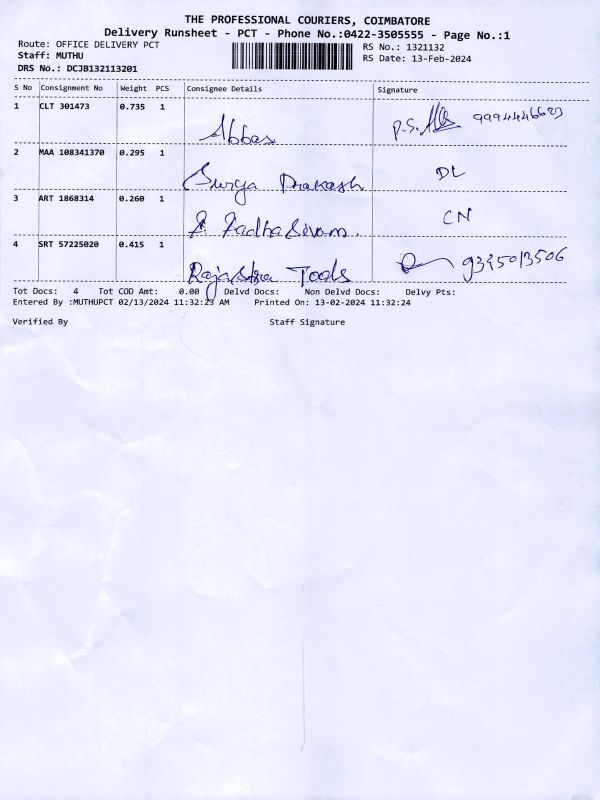 THE PROFESSIONAL COURIERS, COIMBATORE
Delivery Runsheet - PCT - Phone No.:0422-3505555 - Page No.:1
Route: OFFICE DELIVERY PCT
RS No.: 1321132
Staff: MUTHU
RS Date: 13-Feb-2024
DRS No.: DCJB132113201
S No Consignment No Weight PCS Consignee Details Signature
1 CLT 301473 0.735 1 Abbas P.S.
2 MAA 108341370 0.295 1 Surya Prakash DL
3 ART 1868314 0.260 1 Radha Sivam. CN
4 SRT 57225020 0.415 1 Tools
Tot Docs: 4 Tot COD Amt: 0.00 Delvd Docs: Non Delvd Docs: Delvy Pts:
Entered By :MUTHUPCT 02/13/2024 11:32:23 AM Printed On: 13-02-2024 11:32:24
Verified By Staff Signature